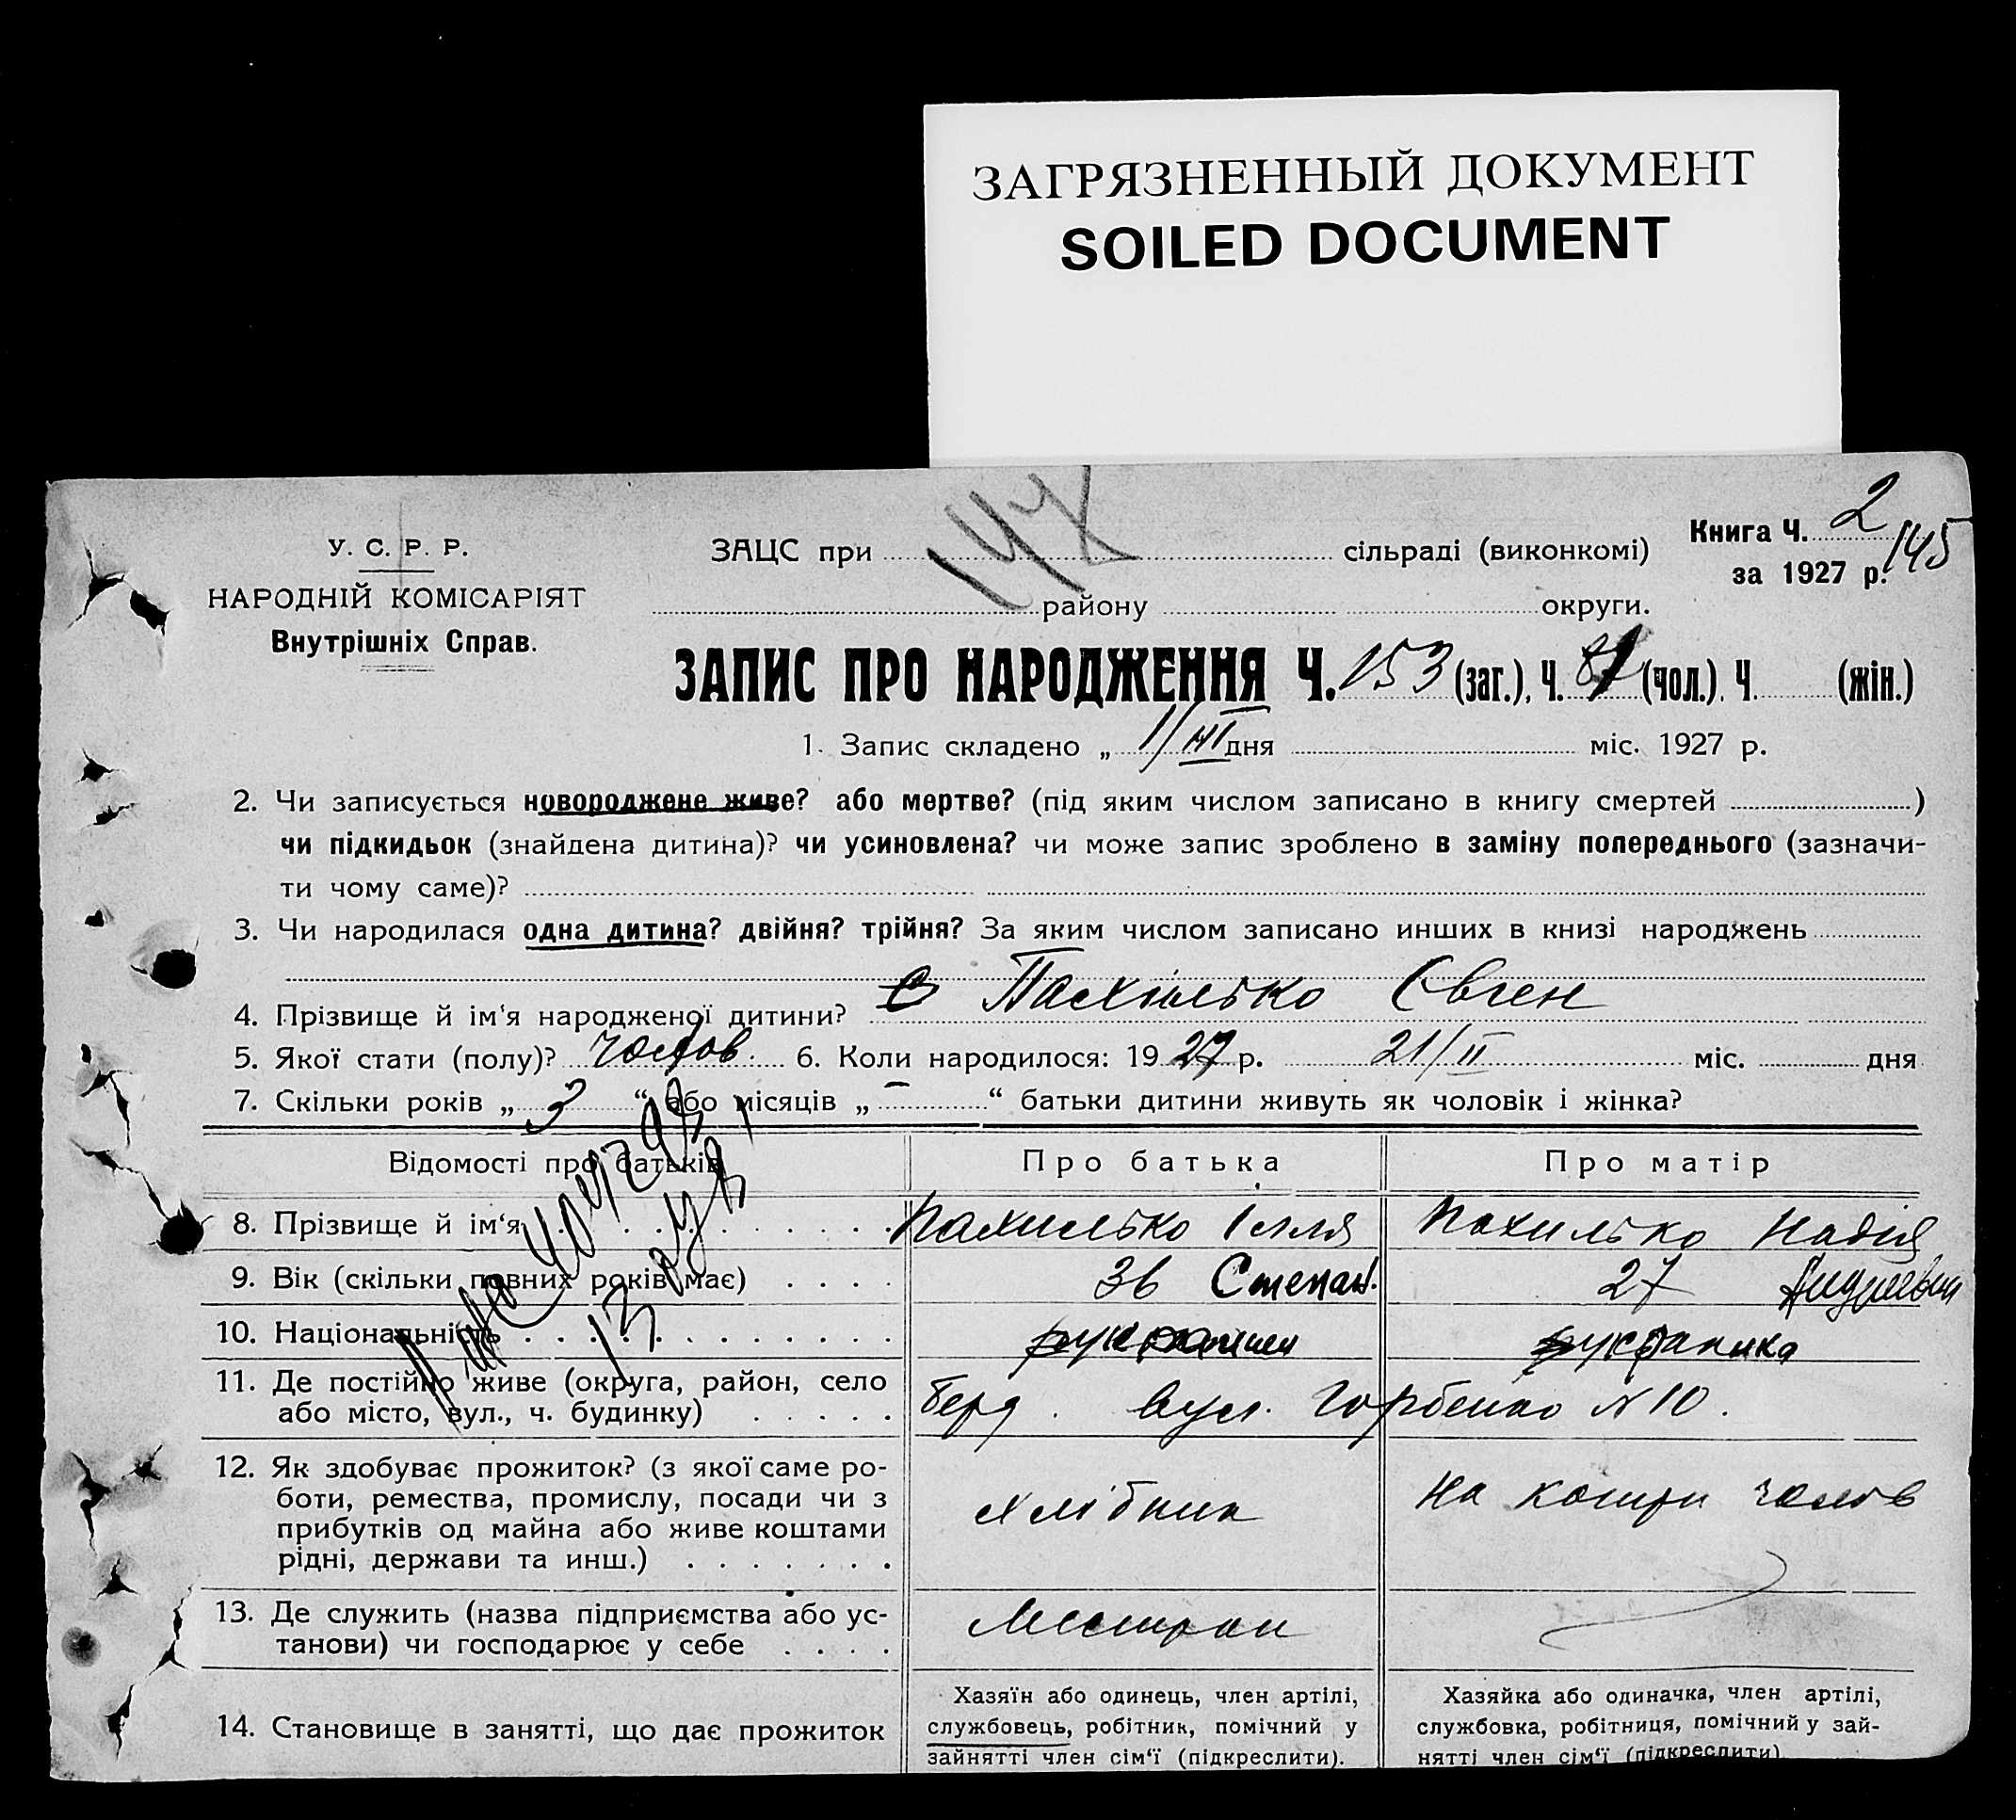 ЗАГРЯЗНЕННЫЙ ДОКУМЕНТ
SOILED DOCUMENT
У. С. Р. Р.
НАРОДНІЙ КОМІСАРІЯТ
Внутрішніх Справ.
ЗАЦС при сільраді (виконкомі)
району округи.
Книга Ч. 2
145
за 1927 р.
ЗАПИС ПРО НАРОДЖЕННЯ Ч. 153 (заг.), Ч. 81 (чол.). Ч. (жін.)
1. Запис складено „ 1/III дня міс. 1927 р.
2. Чи записується новороджене живе? або мертве? (під яким числом записано в книгу смертей )
чи підкидьок (знайдена дитина)? чи усиновлена? чи може запис зроблено в заміну попереднього (зазначи-
ти чому саме)?
3. Чи народилася одна дитина? двійня? трійня? За яким числом записано инших в книзі народжень
4. Прізвище й ім‘я народженої дитини? Пахілько Євген
5. Якої стати (полу)? чолов. 6. Коли народилося: 1927 р. 21/II міс. дня
7. Скільки років „ 3 “ або місяців „ – “ батьки дитини живуть як чоловік і жінка?
Відомості про батьків
Про батька
Про матір
8. Прізвище й ім‘я
Пахилько Ілля
Пахилько Надія
9. Вік (скільки повних років має)
36 Степан.
27
10. Національність
украинка
11. Де постійно живе (округа, район, село
або місто, вул., ч. будинку)
Берд. вул. Горбенко № 10.
12. Як здобуває прожиток? (з якої саме ро-
боти, ремества, промислу, посади чи з
прибутків од майна або живе коштами
рідні, держави та инш.)
На кошти чолов
13. Де служить (назва підприємства або ус-
танови) чи господарює у себе
14. Становище в занятті, що дає прожиток
Хазяїн або одинець, член артілі,
службовець, робітник, помічний у
зайнятті член сім‘ї (підкреслити).
Хазяйка або одиначка, член артілі,
службовка, робітниця, помічний у зай-
нятті член сім‘ї (підкреслити)